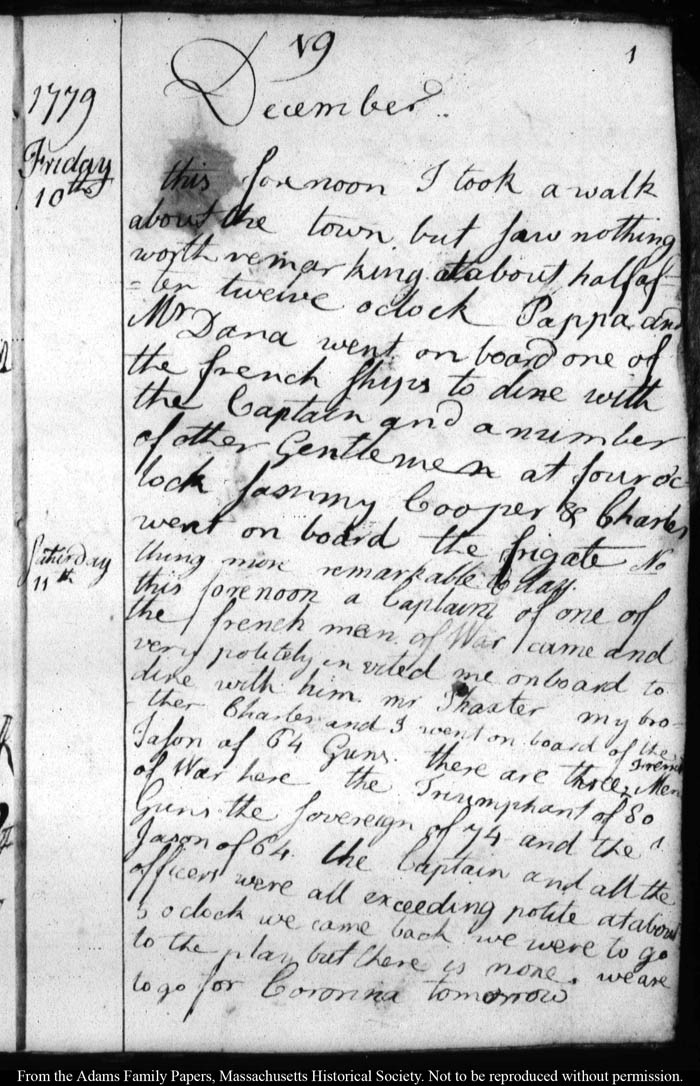 19
1
1779
December
Friday
10th
this forenoon I took a walk
about the town but saw nothing
worth remarking at about half af=
=ter twelve oclock Pappa and
Mr Dana went on board one of
the french Ships to dine with
the Captain and a number
of other Gentlemen at four oc
lock Sammy Cooper & Charles
went on board the frigate No
thing more remarkable to day.
Saturday
11th
this forenoon a Captain of one of
the french men of War came and
very politely invited me on board to
dine with him mr Thaxter my bro-
ther Charles and I went on board of the
Jason of 64 Guns. there are three french Men
of War here the Triumphant of 80
Guns the Sovereign of 74 and the
Jason of 64. the Captain and all the
officers were all exceeding polite at about
5 oclock we came back we were to go
to the play but there is none. we are
to go for Coronna tomorrow
From the Adams Family Papers, Massachusetts Historical Society. Not to be reproduced without permission.